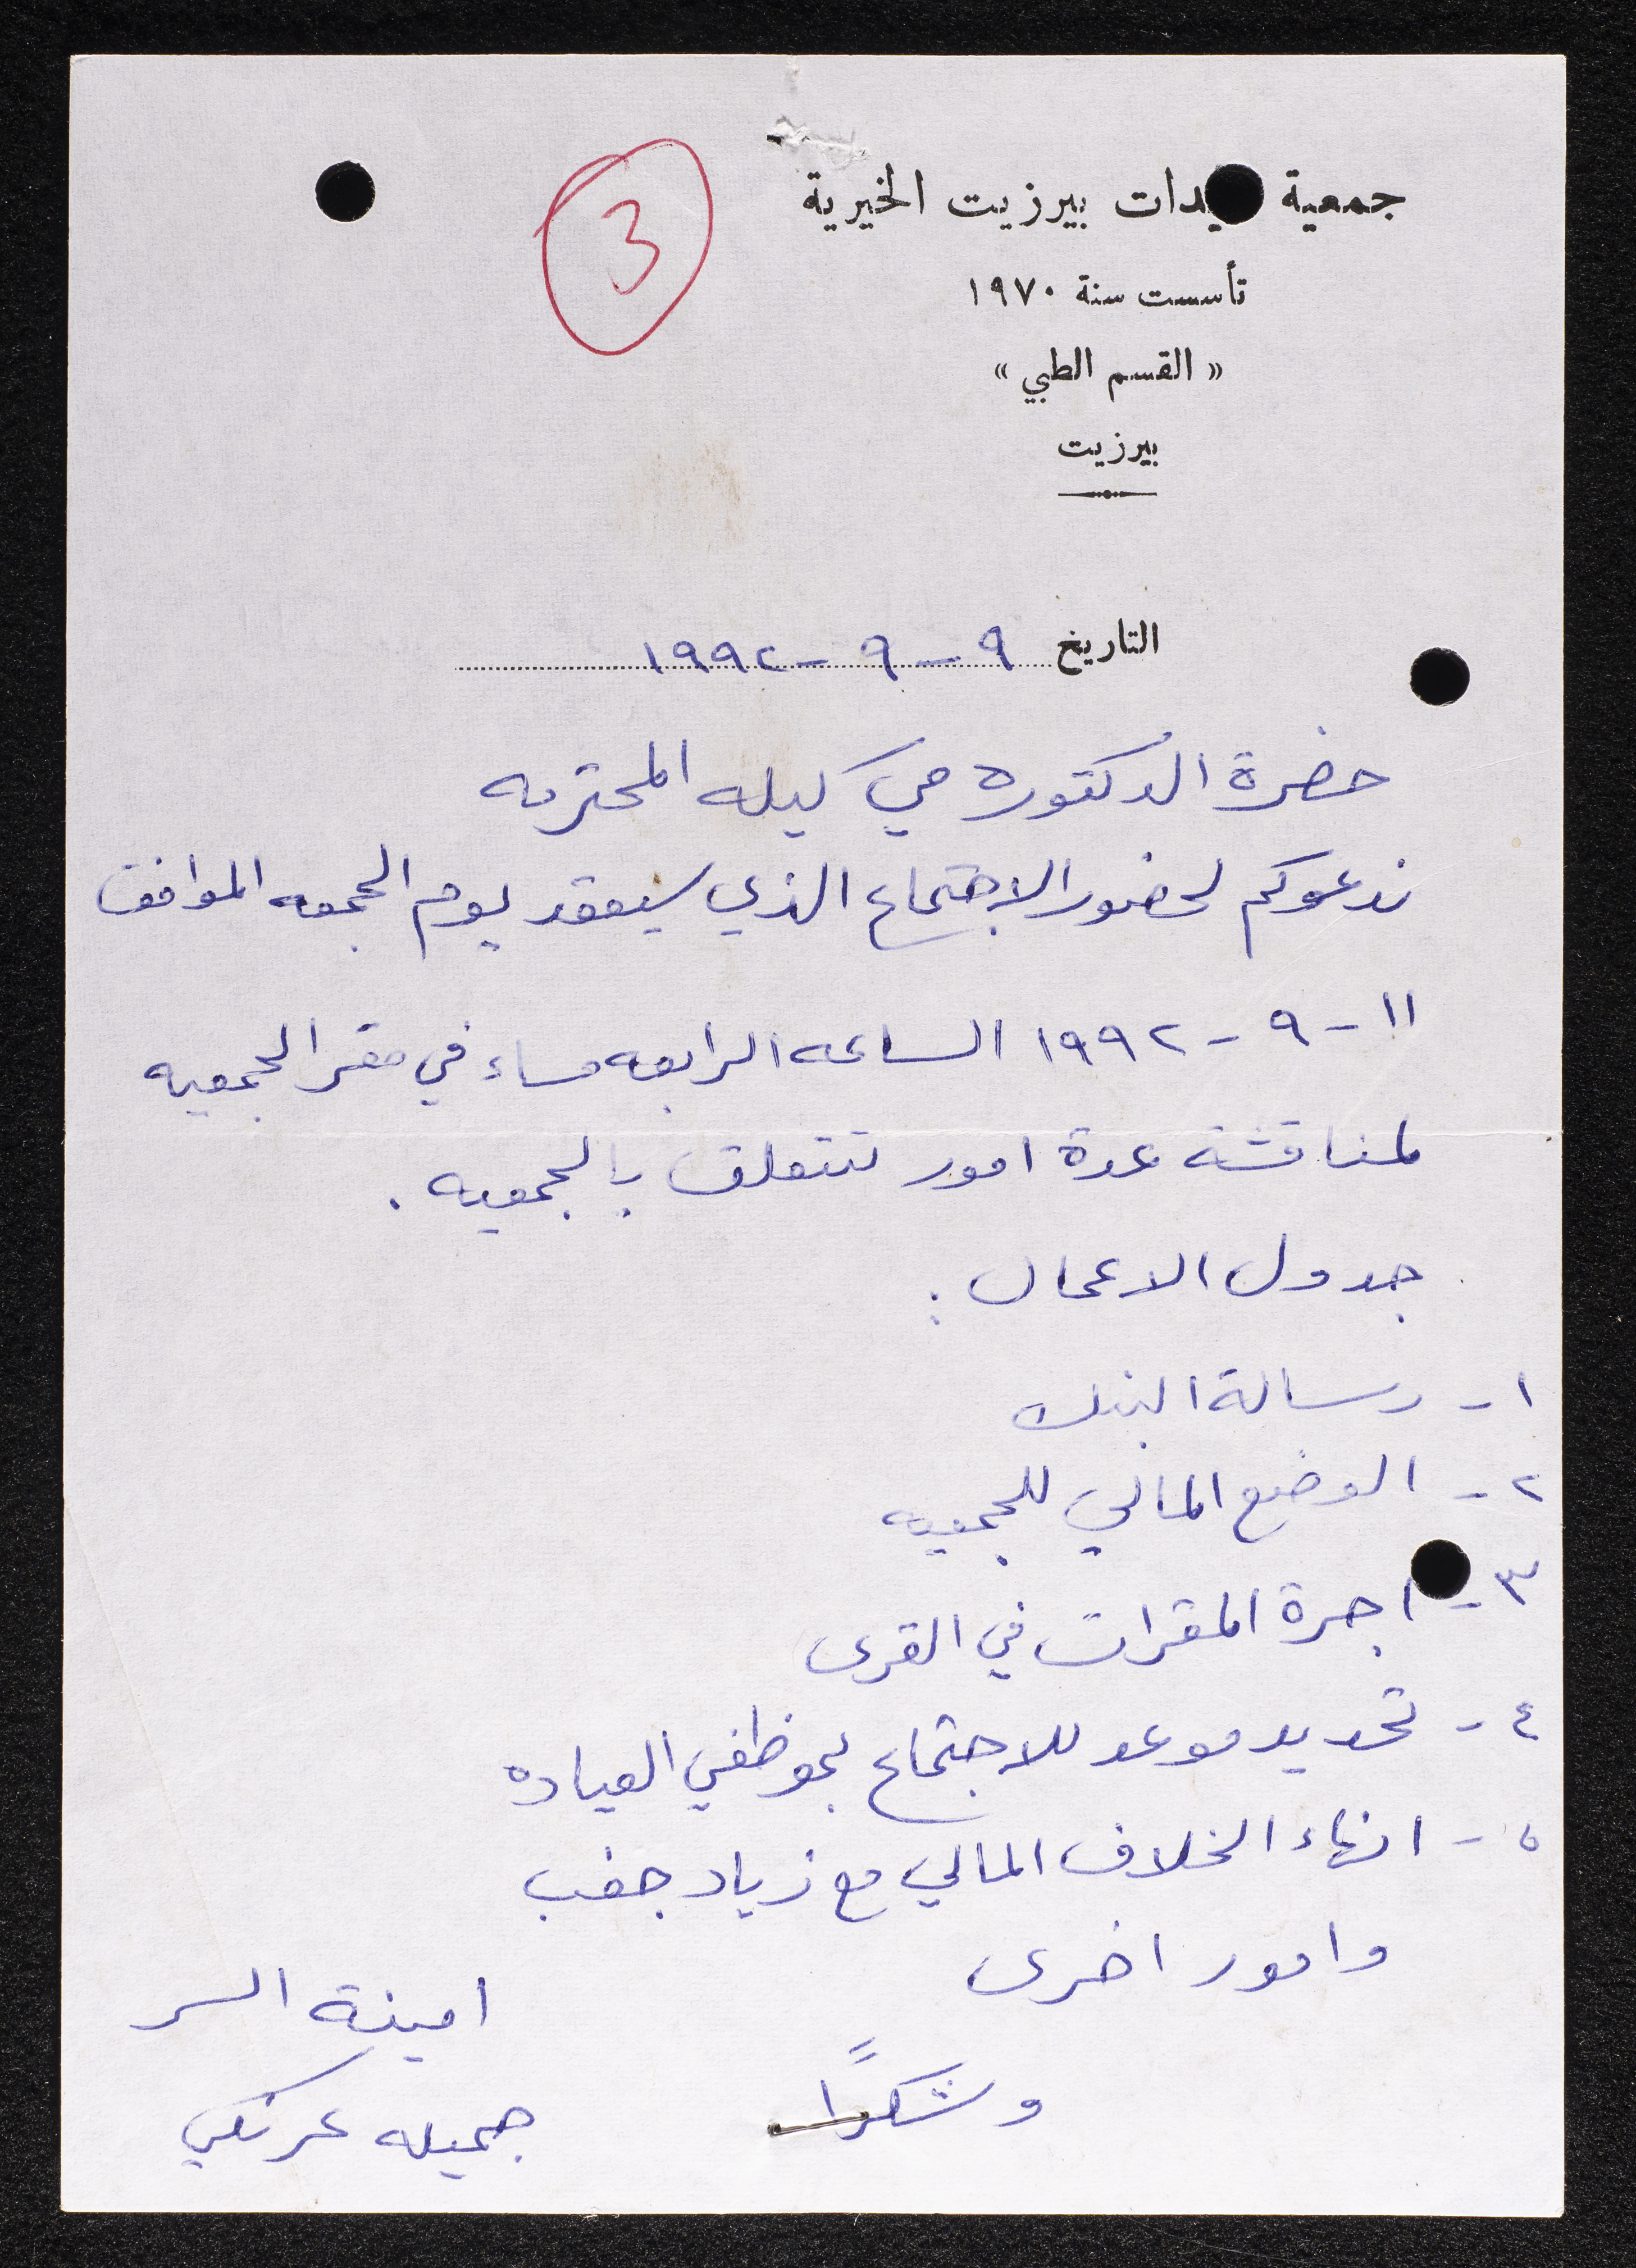 3
جمعية سيدات بيرزيت الخيرية
تأسست سنة ١٩٧٠
« القسم الطبي »
بيرزيت
التاريخ ٩ - ٩ - ١٩٩٢
حضرة الدكتوره مي كيله المحترمه
ندعوكم لحضور الاجتماع الذي سيعقد يوم الجمعه الموافق
١١ - ٩ - ١٩٩٢ الساعه الرابعه مساء في مقر الجمعيه
لمناقشة عدة امور تتعلق بالجمعيه .
جدول الاعمال :
١ - رسالة البنك
٢ - الوضع المالي للجمعيه
٣ - اجرة المقرات في القرى
٤ - تحديد موعد للاجتماع بموظفي العياده
٥ - انهاء الخلاف المالي مع زياد جغب
وامور اخرى
وشكراً
امينة السر
جميله عرنكي